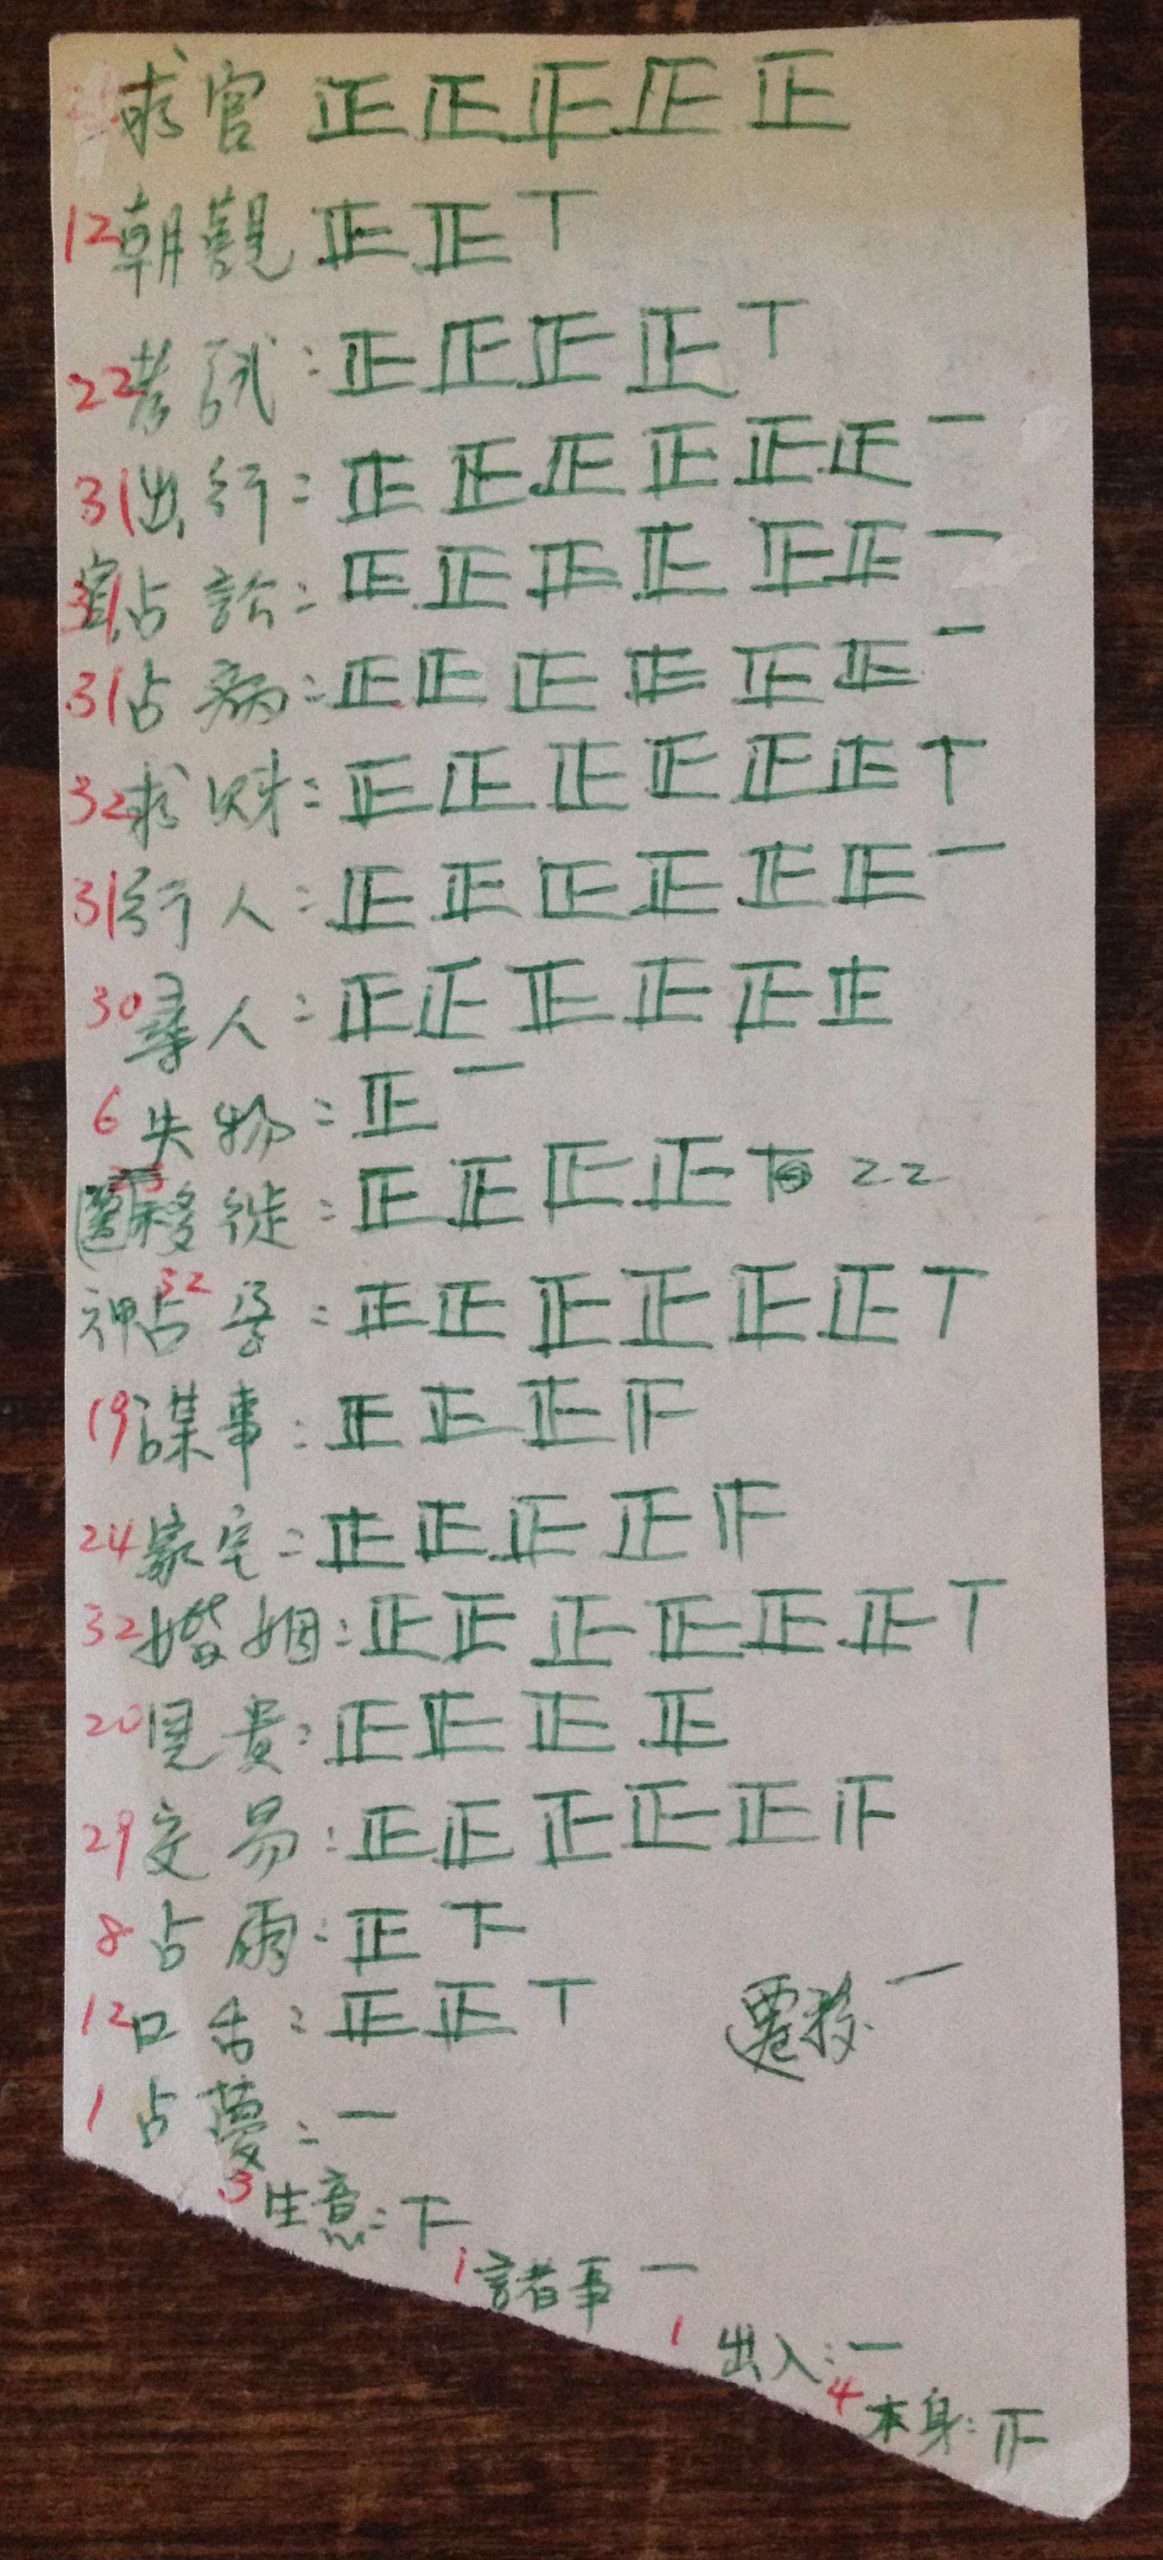 求官 正正正正正
12朝觀 正正丅
22考試:正正正正丅
31出行:正正正正正正一
31官占訟:正正正正正正一
31占病:正正正正正正一
32求財:正正正正正正丅
31行人:正正正正正正一
30尋人:正正正正正正
6失物:正一
移徙:正正正正丅 22
神占孕:32 正正正正正正丅
19謀事:正正正𤴓
24家宅:正正正正𤴓
32婚姻:正正正正正正丅
20見貴:正正正正
29交易:正正正正正𤴓
8占雨:正下
12口舌:正正丅
遷移 一
1占夢:一
3生意:下
1諸事 一
1出入:一
4本身:𤴓